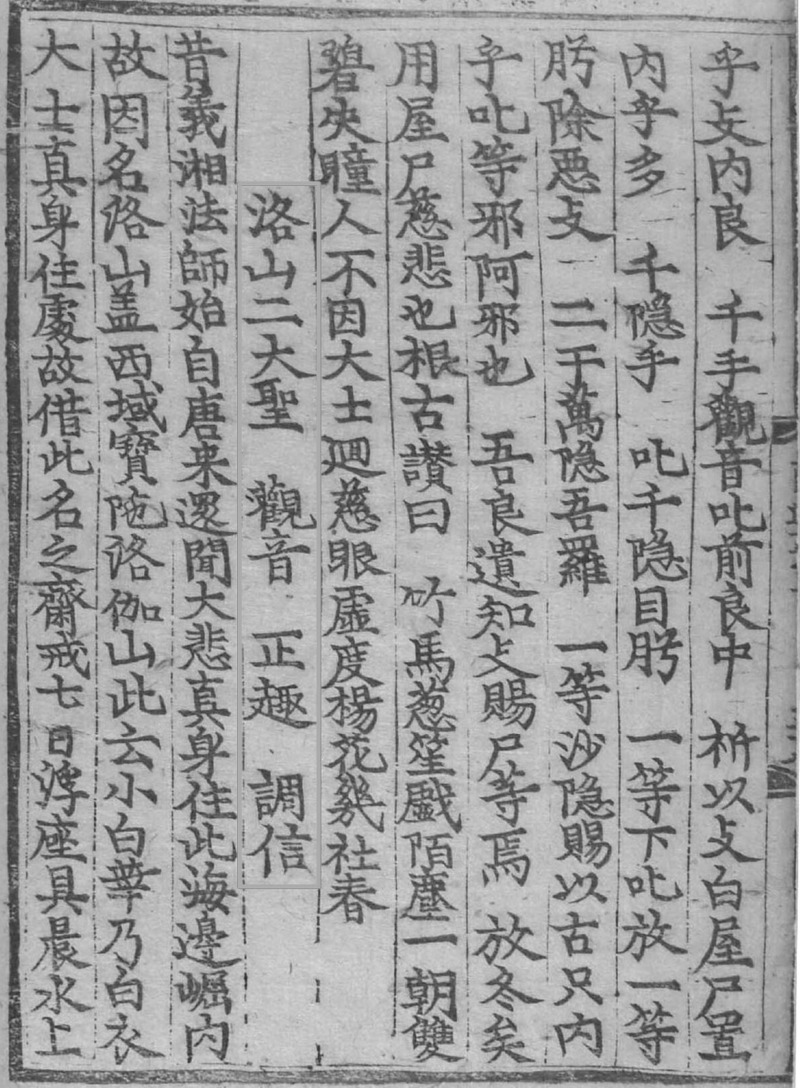 乎攴内良 千手觀音叱前良中 祈以攴白屋尸置
内乎多 千隐手 叱千隐目肹 一等下叱放一等
肹除惡攴 二于萬隐吾羅 一等沙隐賜以古只内
乎叱等邪阿邪也 吾良遺知攴賜尸等焉 放冬矣
用屋尸慈悲也根古讃曰 竹馬葱笙戱陌塵一朝雙
碧失瞳人不因大士廻慈眼虛度楊花幾社春
洛山二大聖 觀音 正趣 調信
昔義湘法師始自唐来還聞大悲真身住此海邊崛内
故因名洛山盖西域寶陁洛伽山此云小白華乃白衣
大士真身住處故借此名之齋戒七日浮座具晨水上